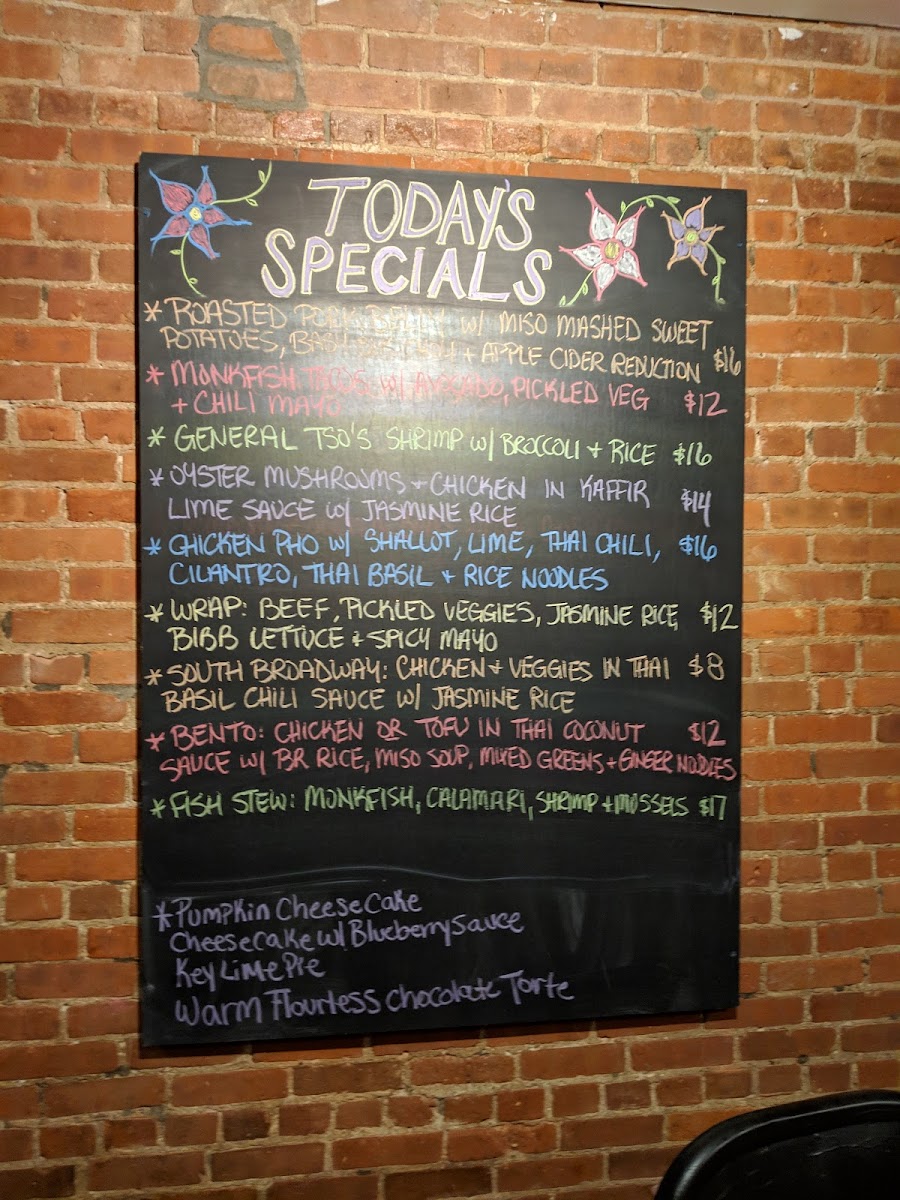 TODAY'S
SPECIALS
* ROASTED PORK BELLY W/ MISO MASHED SWEET
POTATOES, + APPLE CIDER REDUCTION $16
* MONKFISH TACOS W/ AVOCADO, PICKLED VEG
+ CHILI MAYO $12
* GENERAL TSO'S SHRIMP W/ BROCCOLI + RICE $16
* OYSTER MUSHROOMS + CHICKEN IN KAFFIR
LIME SAUCE W/ JASMINE RICE $14
* CHICKEN PHO W/ SHALLOT, LIME, THAI CHILI, $16
CILANTRO, THAI BASIL + RICE NOODLES
* WRAP: BEEF, PICKLED VEGGIES, JASMINE RICE, $12
BIBB LETTUCE + SPICY MAYO
* SOUTH BROADWAY: CHICKEN + VEGGIES IN THAI $8
BASIL CHILI SAUCE W/ JASMINE RICE
* BENTO: CHICKEN OR TOFU IN THAI COCONUT $12
SAUCE W/ BR RICE, MISO SOUP, MIXED GREENS + GINGER NOODLES
* FISH STEW: MONKFISH, CALAMARI, SHRIMP + MUSSELS $17
* Pumpkin CheeseCake
CheeseCake w/ Blueberry Sauce
Key Lime Pie
Warm Flourless Chocolate Torte